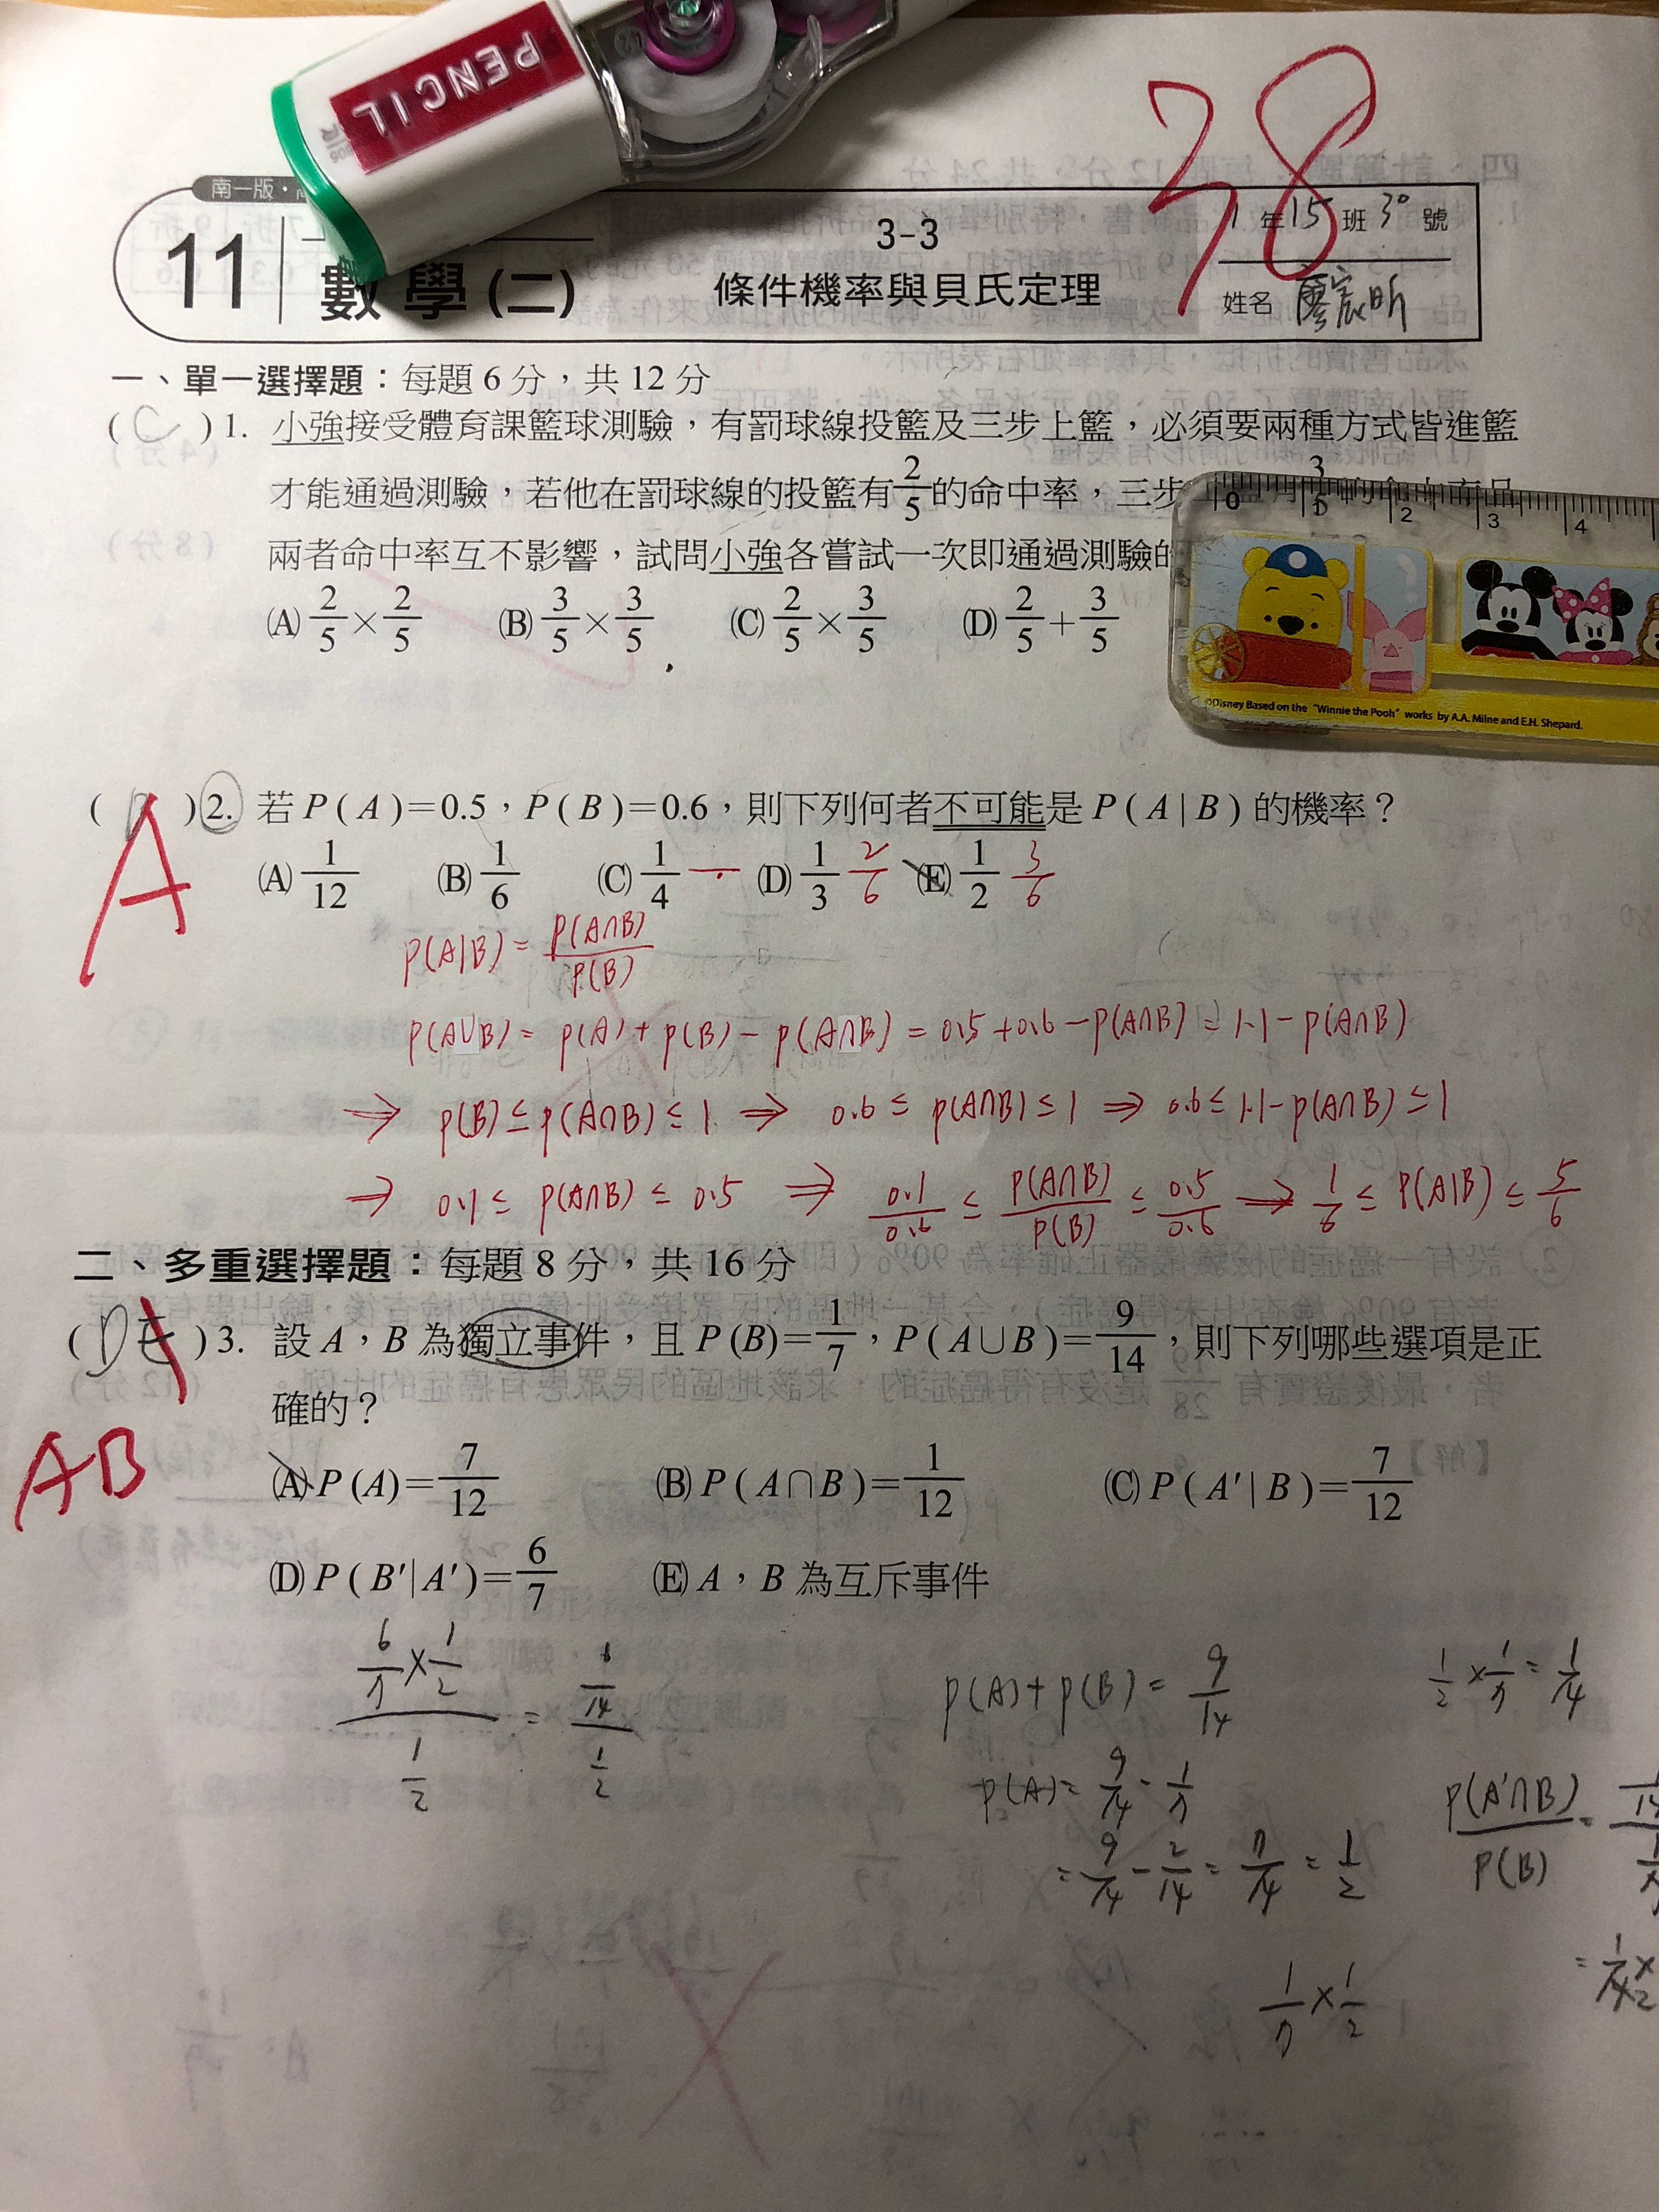 PENCIL
38
南一版．
11
數學(二)
3-3
條件機率與貝氏定理
1年15班30號
姓名 廖宸昕
一、單一選擇題：每題6分，共12分
( C ) 1. 小強接受體育課籃球測驗，有罰球線投籃及三步上籃，必須要兩種方式皆進籃
才能通過測驗，若他在罰球線的投籃有2/5的命中率，三步
兩者命中率互不影響，試問小強各嘗試一次即通過測驗的
(A) 2/5×2/5 (B) 3/5×3/5 (C) 2/5×3/5 (D) 2/5+3/5
0 1 2 3 4
©Disney Based on the "Winnie the Pooh" works by A.A. Milne and E.H. Shepard.
( A ) 2. 若P(A)=0.5，P(B)=0.6，則下列何者不可能是P(A|B)的機率？
(A) 1/12 (B) 1/6 (C) 1/4 (D) 1/3 2/6 (E) 1/2 3/6
P(A|B) = P(A∩B)/P(B)
P(A∪B) = P(A)+P(B)-P(A∩B) = 0.5+0.6-P(A∩B) = 1.1-P(A∩B)
⇒ P(B)≤P(A∩B)≤1 ⇒ 0.6≤P(A∩B)≤1 ⇒ 0.6≤1.1-P(A∩B)≤1
⇒ 0.1≤P(A∩B)≤0.5 ⇒ 0.1/0.6≤P(A∩B)/P(B)≤0.5/0.6 ⇒ 1/6≤P(A|B)≤5/6
二、多重選擇題：每題8分，共16分
( DE ) 3. 設A，B為獨立事件，且P(B)=1/7，P(A∪B)=9/14，則下列哪些選項是正
確的？
AB
(A) P(A)=7/12 (B) P(A∩B)=1/12 (C) P(A'|B)=7/12
(D) P(B'|A')=6/7 (E) A，B為互斥事件
6/7×1/2 / 1/2 = 6/14 / 1/2
P(A)+P(B)=9/14
1/2×1/7=1/14
P(A)=9/14-1/7
=9/14-2/14=7/14=1/2
P(A'∩B)/P(B)=
1/7×1/2